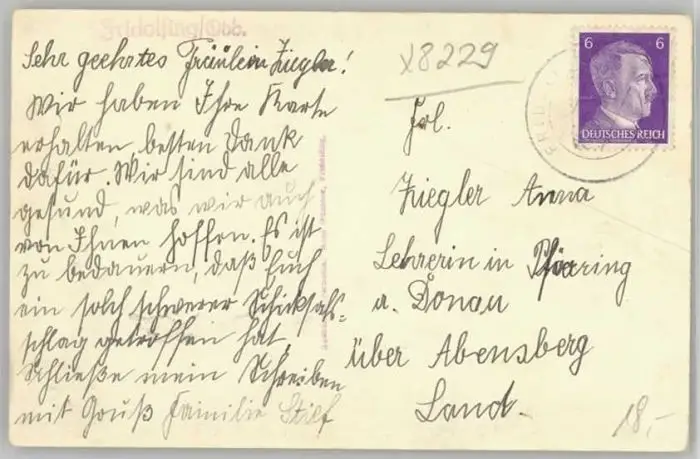 Fridolfing/Obb.
Sehr geehrtes Fräulein Ziegler!
Wir haben Ihre Karte
erhalten, besten Dank
dafür. Wir sind alle
gesund, was wir auch
von Ihnen hoffen. Es ist
zu bedauern, daß Euch
ein solch schwerer Schicksals-
schlag getroffen hat.
Schließe mein Schreiben
mit Gruß Familie Stief
X8229
6 6
DEUTSCHES REICH
Frl.
Ziegler Anna
Lehrerin in Pförring
a. Donau
über Abensberg
Land.
18,-